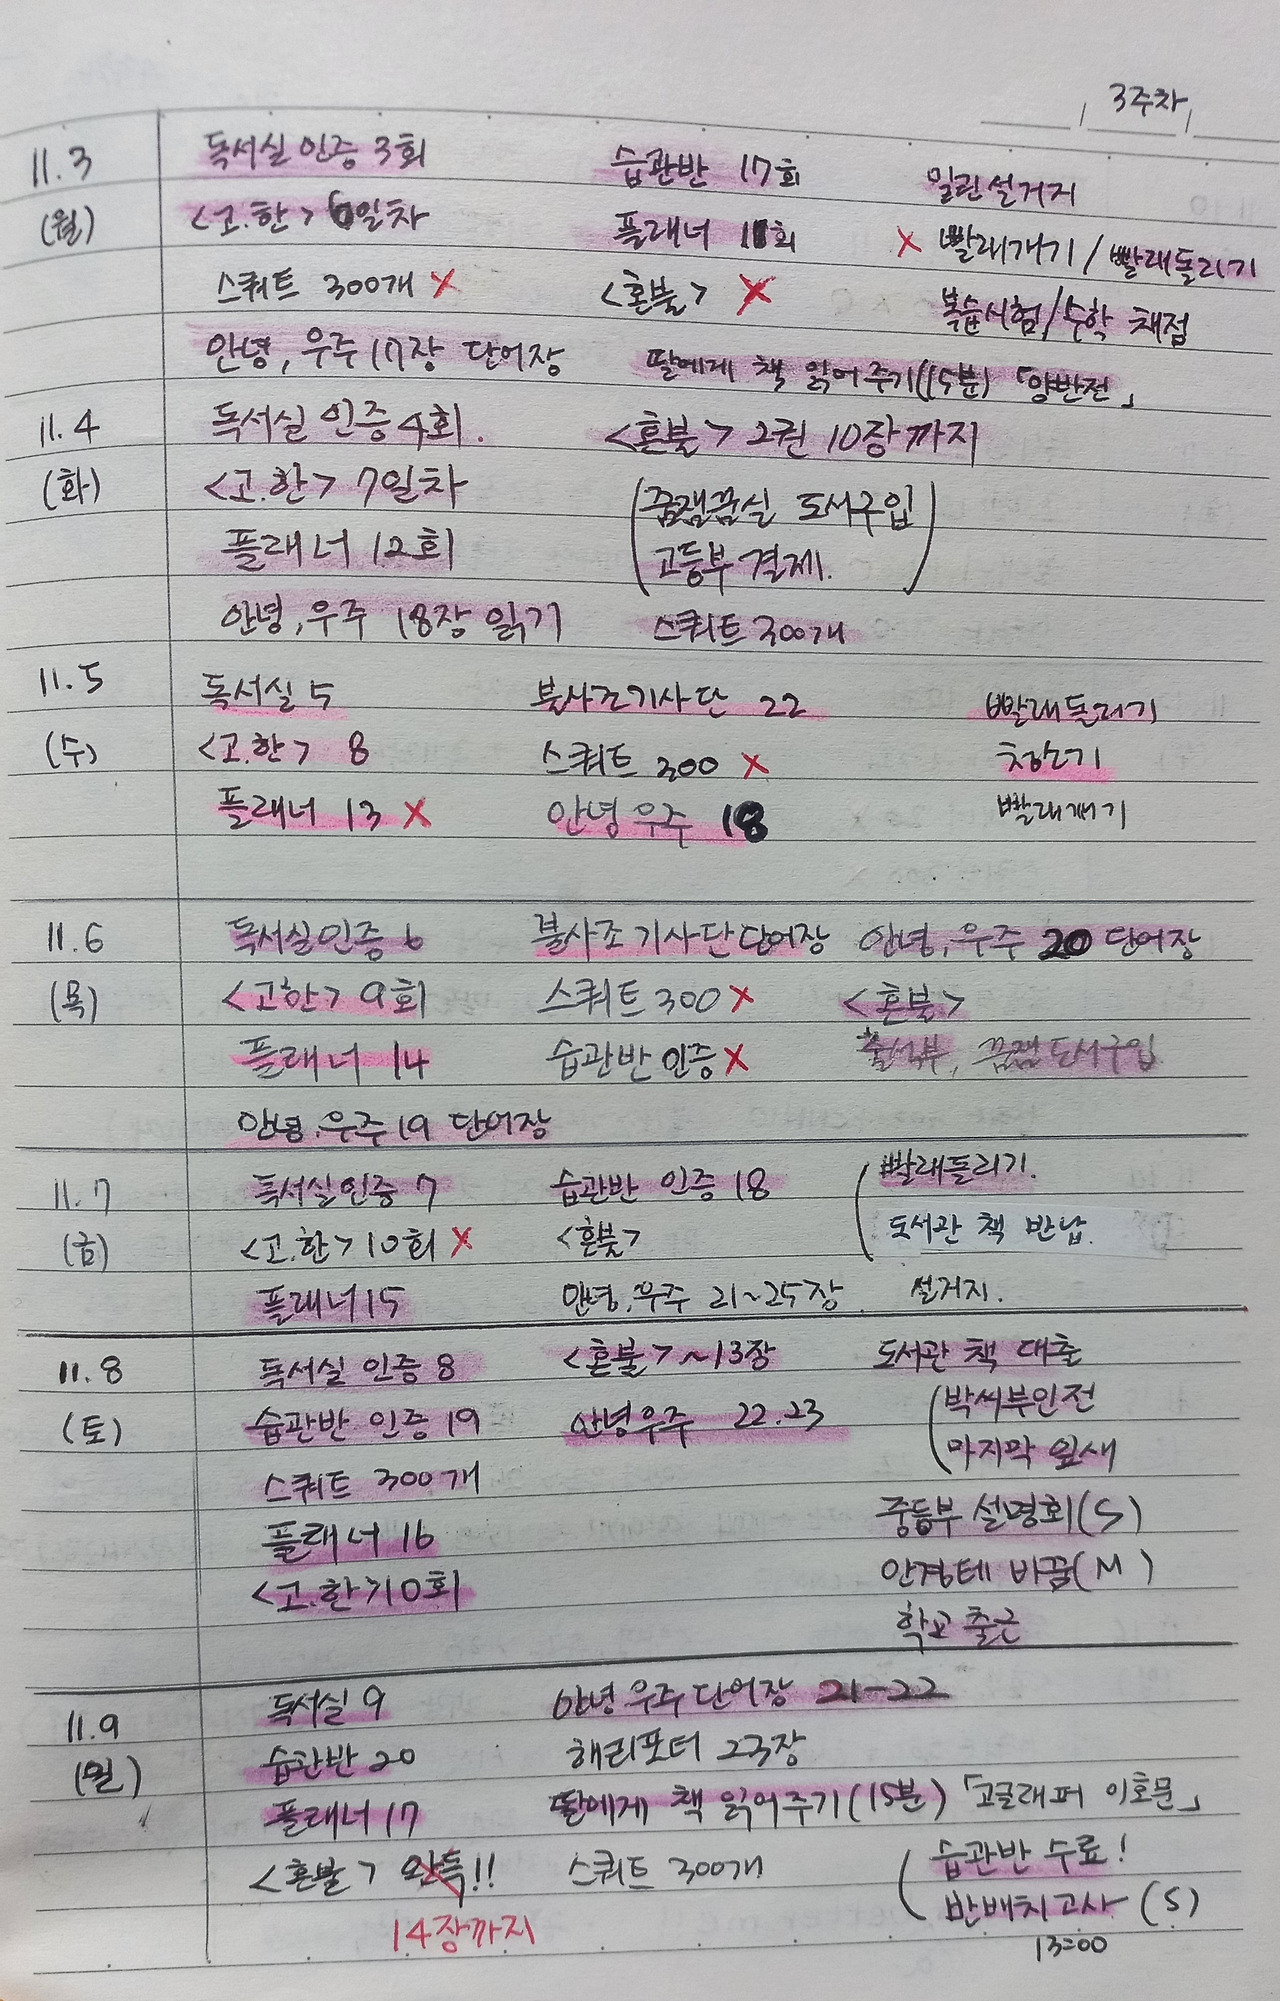 3주차
11.3 독서실 인증 3회 습관반 17회 밀린설거지
(월) <고.한> 6일차 플래너 11회 X 빨래개기/빨래돌리기
스쿼트 300개 X <혼불> X 복습시험/수학 채점
안녕, 우주 17장 단어장 딸에게 책 읽어주기(15분) 「양반전」
11.4 독서실 인증 4회. <혼불> 2권 10장까지
(화) <고.한> 7일차 (꿈잼꿈실 도서구입
플래너 12회 고등부 결제.)
안녕, 우주 18장 읽기 스쿼트 300개
11.5 독서실 5 불사조기사단 22 빨래돌리기
(수) <고.한> 8 스쿼트 300 X 청소기
플래너 13 X 안녕 우주 18 빨래개기
11.6 독서실인증 6 불사조 기사단 단어장 안녕, 우주 20 단어장
(목) <고한> 9회 스쿼트 300 X <혼불>
플래너 14 습관반 인증 X 출석부, 꿈잼도서구입
안녕, 우주 19 단어장
11.7 독서실인증 7 습관반 인증 18 (빨래돌리기.
(금) <고.한> 10회 X <혼불> 도서관 책 반납.
플래너 15 안녕, 우주 21~25장 설거지.
11.8 독서실 인증 8 <혼불>~13장 도서관 책 대출
(토) 습관반 인증 19 안녕우주 22.23 (박씨부인전
스쿼트 300개 마지막 잎새
플래너 16 중등부 설명회(S)
<고.한> 10회 안경테 바꿈(M)
학교 출근
11.9 독서실 9 안녕 우주 단어장 21-22
(일) 습관반 20 해리포터 23장
플래너 17 딸에게 책 읽어주기(15분) 「고글래퍼 이호문」
<혼불> 완독!! 스쿼트 300개 (습관반 수료!
14장까지 반배치고사 (S)
13=00